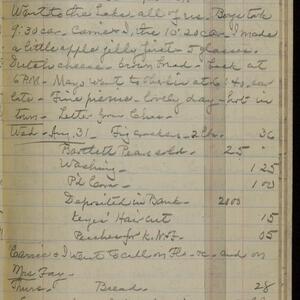 Went to the Lake all of us. Boys took
9:30 car. Carrie & I the 10:20 car. I made
a little apple jelly first - 5 glasses.
Dutch cheese - brown bread - Back at
6 P.M. - Mays went to thein at 6:40 car
late - Fine picnic - lovely day - hot in
town. Letter from Chas.
Wed - Aug. 31 Fig cookies - 2 lbs. 36
Bartlett Pears sold. 25
Washing 1 25
P'd Cora 1 00
Deposited in Bank 20 00
Hair cut 15
Peaches for K.N.F. 05
Carrie & I went to call on Flo and on
Mrs Fay.
Thurs. Bread. 28